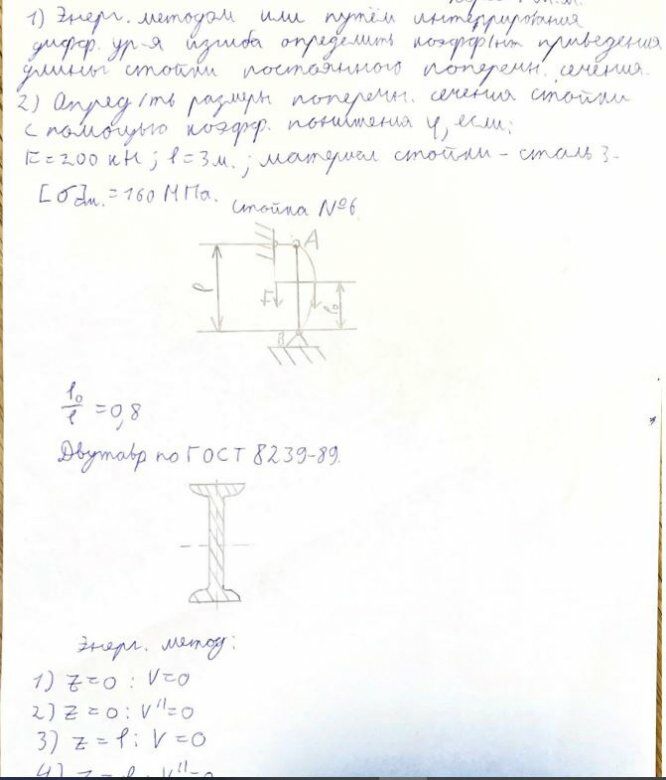 1) Энерг. методом или путём интегрирования
дифф. ур-я изгиба определить коэфф/нт приведения
длины стойки постоянного поперечн. сечения.
2) Опред/ть размеры поперечн. сечения стойки
с помощью коэфф. понижения φ, если:
F=200 кН; l=3м.; материал стойки - сталь 3-
[σ]сж.=160 МПа.
Стойка №6
A
l
F
l₀
B
l₀/l =0,8
Двутавр по ГОСТ 8239-89.
Энерг. метод:
1) z=0 : V=0
2) z=0 : V''=0
3) z=l : V=0
4) z=l : V''=0